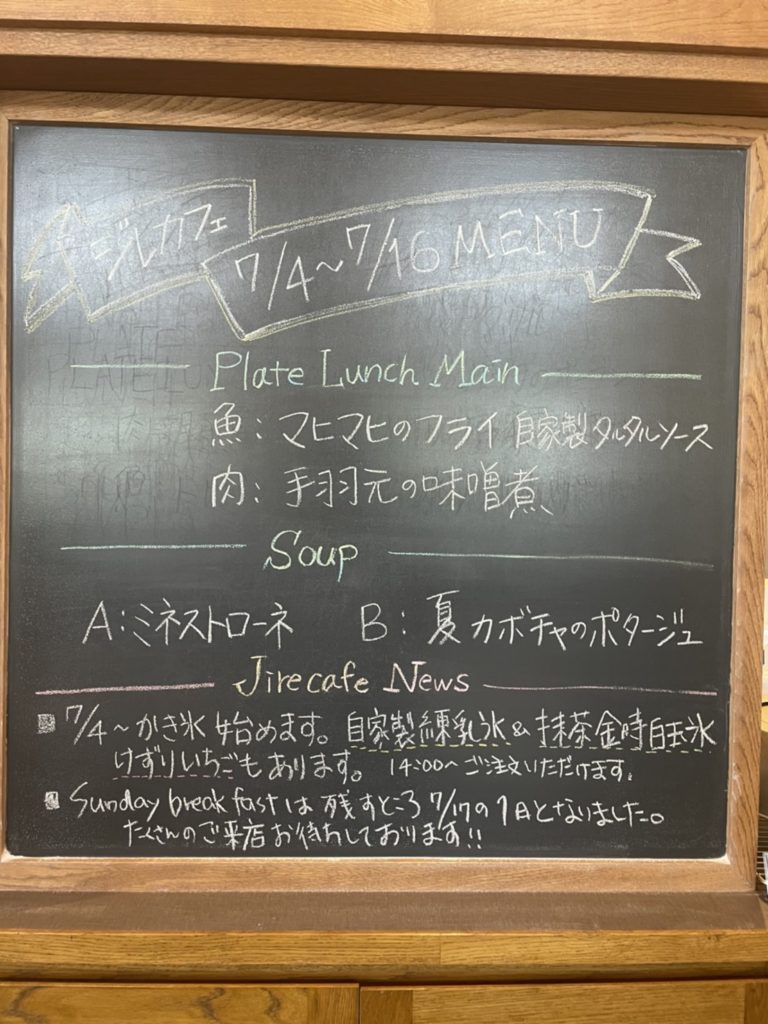 ジルカフェ
7/4～7/16 MENU
Plate Lunch Main
魚：マヒマヒのフライ 自家製タルタルソース
肉：手羽元の味噌煮
Soup
A：ミネストローネ B：夏カボチャのポタージュ
Jirecafe News
7/4～かき氷始めます。自家製練乳氷&抹茶金時白玉氷
けずりいちごもあります。 14:00～ご注文いただけます。
Sunday breakfastは残すところ7/17の1日となりました。
たくさんのご来店お待ちしております!!